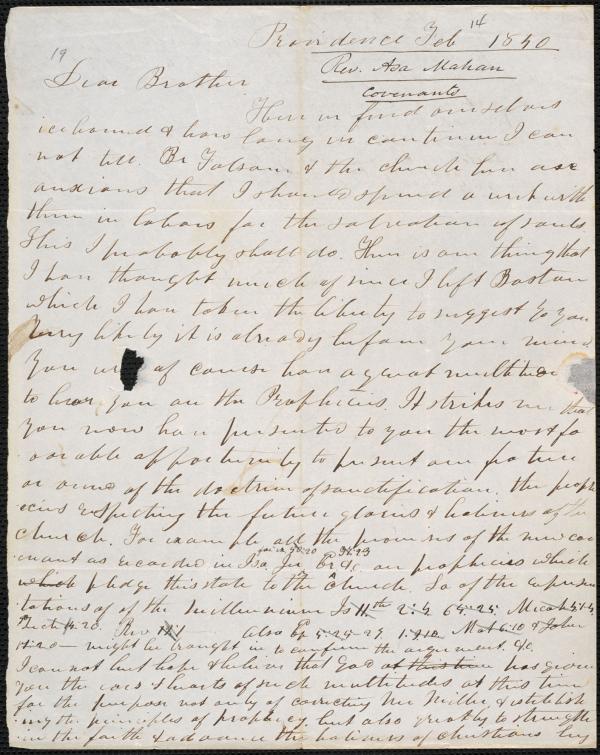 19
Providence Feb 14 1840
Rev. Asa Mahan
Covenants
Dear Brother
Here we find ourselves
icebound & how long we continue I can
not tell. Br Folsom & the church here are
anxious that I should spend a week with
them in labors for the salvation of souls
This I probably shall do. There is one thing that
I have thought much of since I left Boston
which I have taken the liberty to suggest to you
Very likely it is already before your mind
You will of course have a great multitude
to hear you on the Prophecies. It strikes me that
you now have presented to you the most fa
vorable opportunity to present one feature
or of the doctrine of sanctification. the proph
ecies respecting the future glories & holiness of the
church. For example all the promises of the new cov
enant as recorded in Isa. Jer Ez &c are prophecies which
which pledge this state to the Church. So of the represen
tations of of the Millennium Is 11th 2:4 65:25 Micah 4:1-4
14:20. Rev also Ep 5:25-27 1:9,10 Mat 6:10 & John
17:20— might be brought in to confirm the argument. &c.
I can not but hope & believe that God at this time has given
you the ears & hearts of such multitudes at this time
for the purpose not only of correcting Mr Miller & establish
ing the principles of prophecy but also greatly to strengthen
the faith & advance the holiness of christians by